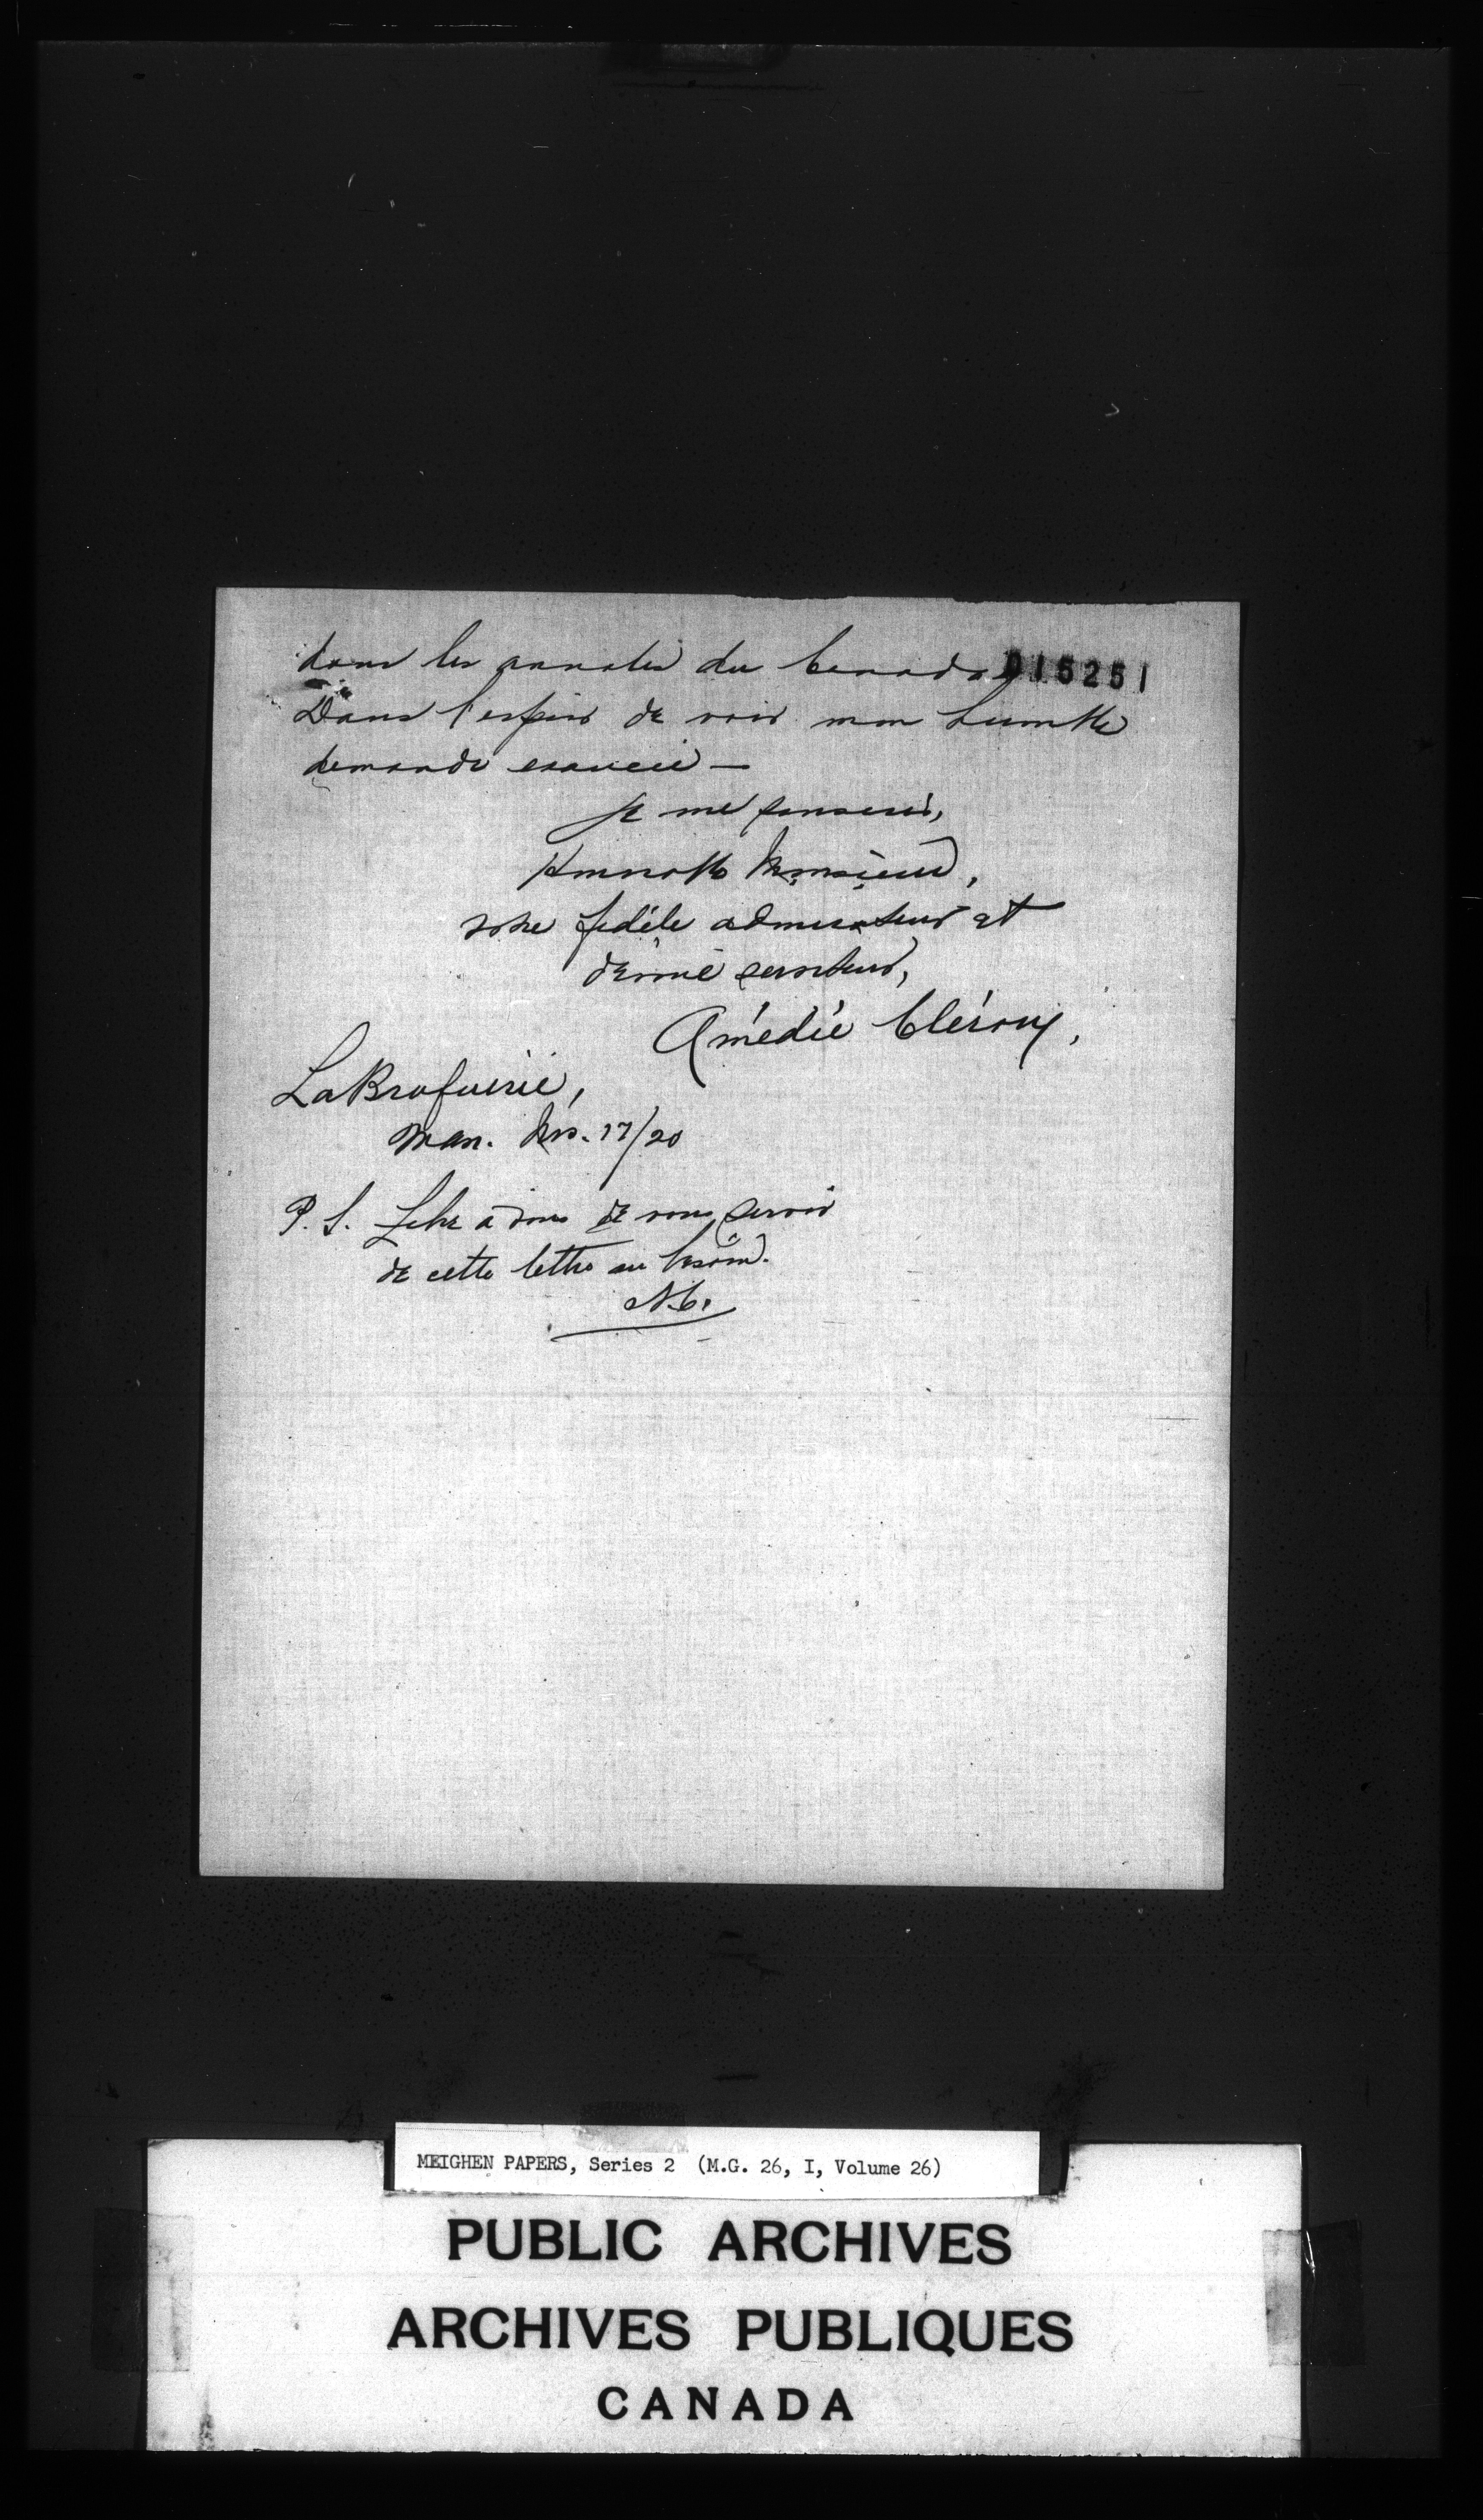 dans les annales du Canada. 015251
Dans l'espoir de voir mon humble
demande exaucée —
Je me souscris,
Honorable Monsieur,
votre fidèle admirateur et
dévoué serviteur,
Amédée Cléroux,
LaBroquerie,
Man. Nov. 17/20
P.S. Libre à vous de vous servir
de cette lettre au besoin.
A.C.
MEIGHEN PAPERS, Series 2 (M.G. 26, I, Volume 26)
PUBLIC ARCHIVES
ARCHIVES PUBLIQUES
CANADA